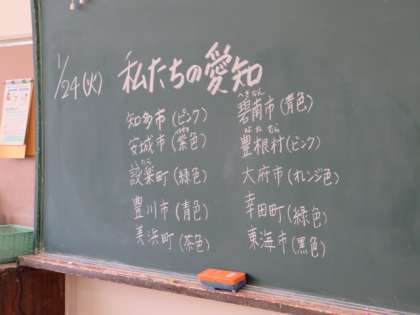 1/24(火)
私たちの愛知
知多市(ピンク)
安城市(紫色)
設楽町(緑色)
豊川市(青色)
美浜町(茶色)
へきなん
碧南市(黄色)
とよねむら
豊根村(ピンク)
大府市(オレンジ色)
幸田町(緑色)
東海市(黒色)